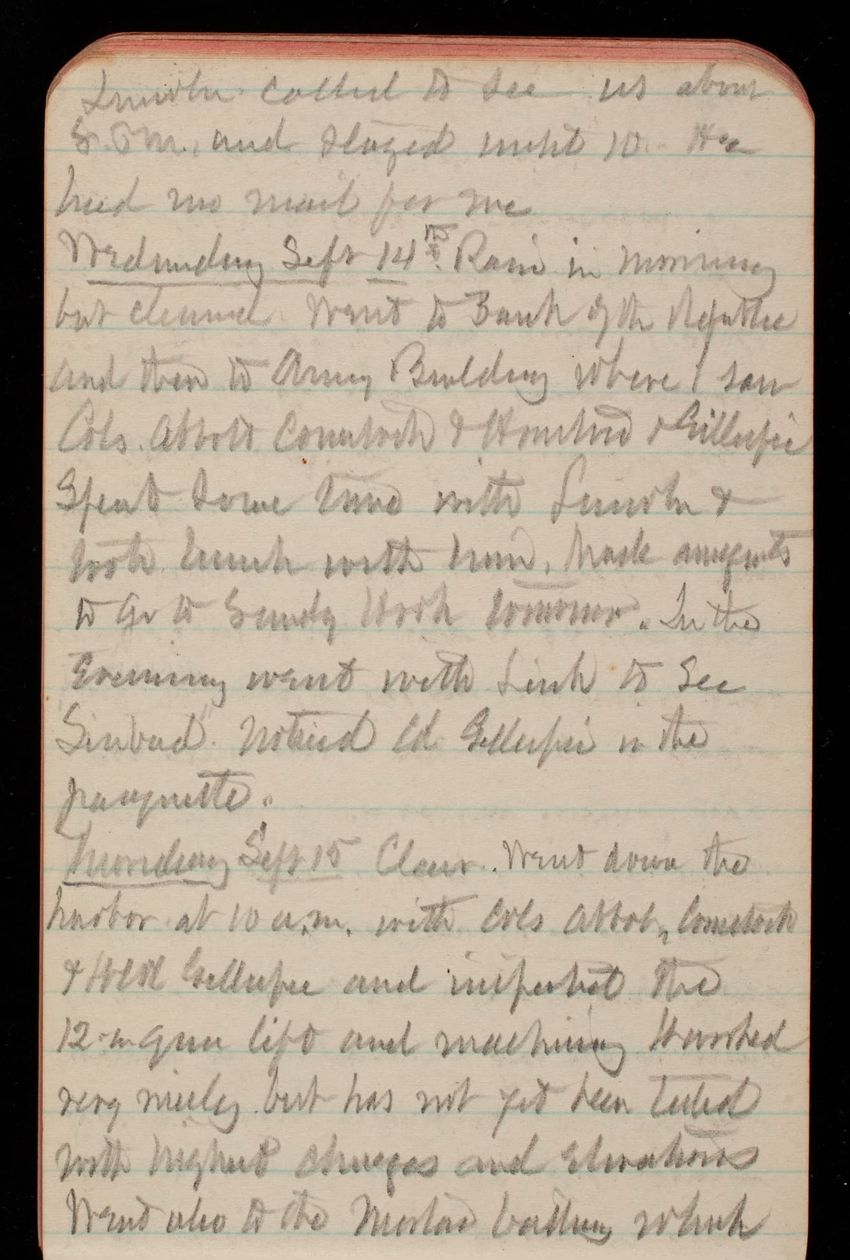 Lincoln called to see us about
8 P.M. and stayed until 10. He
had no mail for me
Wednesday Sept 14th. Rain in morning
but cleared. Went to Bank of the Republic
and then to Army Building where I saw
Cols. Abbott Comstock & & Gillespie
Spent some time with Lincoln &
took lunch with him. Made
to go to Sandy Hook tomorrow. In the
Evening went with Link to See
"Sinbad". Noticed Col Gillespie in the
parquette.
Thursday Sept 15 Clear. Went down the
harbor at 10 a.m. with Cols Abbot, Comstock
& Gillespie and inspected the
12-in gun lift and machinery. Worked
very nicely but has not yet been tested
with highest charges and Elevations
Went also to the Mortar battery which